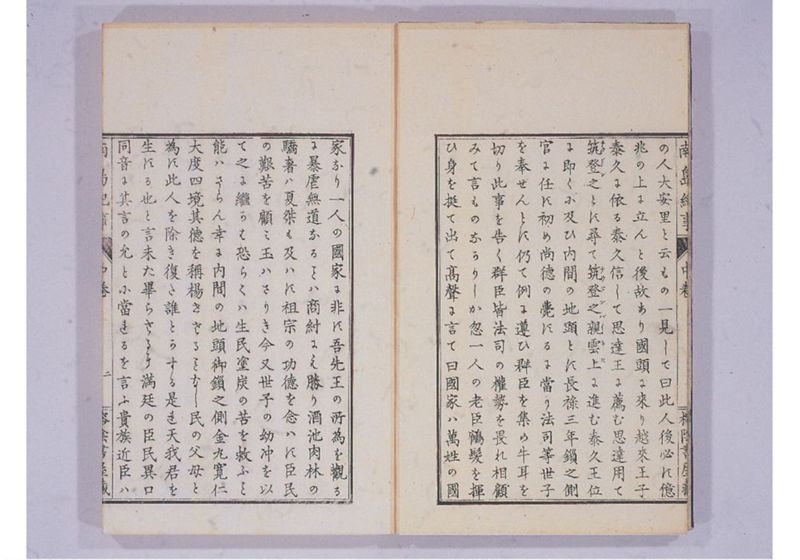 南島紀事 中卷 榕陰書屋藏
の人大安里と云もの一見して曰此人後必す億
兆の上に立んと後故あり國頭に來り越來王子
泰久に依る泰久信して思達王に薦む思達用て
筑登之とす尋て筑登之親雲上に進む泰久王位
に即くに及ひ内間の地頭とす長祿三年鎖之側
官に任す初め尚德の薨するに當り法司等世子
を奉せんとす仍て例に遵ひ群臣を集め牛耳を
切り此事を告く群臣皆法司の權勢を畏れ相顧
みて言ものなかりしか忽一人の老臣鶴髮を揮
ひ身を挺て出て高聲に言て曰國家ハ萬姓の國
家なり一人の國家に非す吾先王の所為を觀る
に暴虐無道なることハ商紂にも勝り酒池肉林の
驕奢ハ夏桀も及ハす祖宗の功德を念ハす臣民
の艱苦を顧ミ玉ハさりき今又世子の幼冲を以
て之に繼くも恐らくハ生民塗炭の苦を救ふと
能ハさらん幸に内間の地頭御鎖之側金丸寬仁
大度四境其德を稱揚せさることなし民の父母と
為す此人を除き復た誰とかする是れ天我君を
生する也と言未た畢らさるより滿廷の臣民異口
同音に其言の允とに當れるを言ふ貴族近臣ハ
南島紀事 中卷 二 榕陰書屋藏